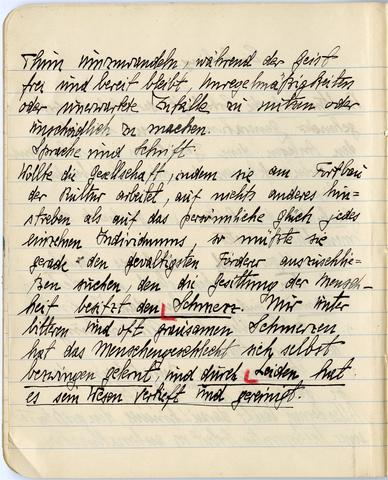 Thun umzuwandeln, während der Geist
frei und bereit bleibt, Unregelmäßigkeiten
oder unerwartete Zufälle zu nutzen oder
unschädlich zu machen.
Sprache und Schrift.
Wollte die Gesellschaft, indem sie am Fortbau
der Kultur arbeitet, auf nichts anderes hin-
streben als auf das persönliche Glück jedes
einzelnen Individuums, so müßte sie
gerade den gewaltigsten Förderer auszuschlie-
ßen suchen, den die Gesittung der Mensch-
heit besitzt den Schmerz. Nur unter
bittern und oft grausamen Schmerzen
hat das Menschengeschlecht sich selbst
bezwingen gelernt, und durch Leiden hat
es sein Wesen vertieft und gereinigt.